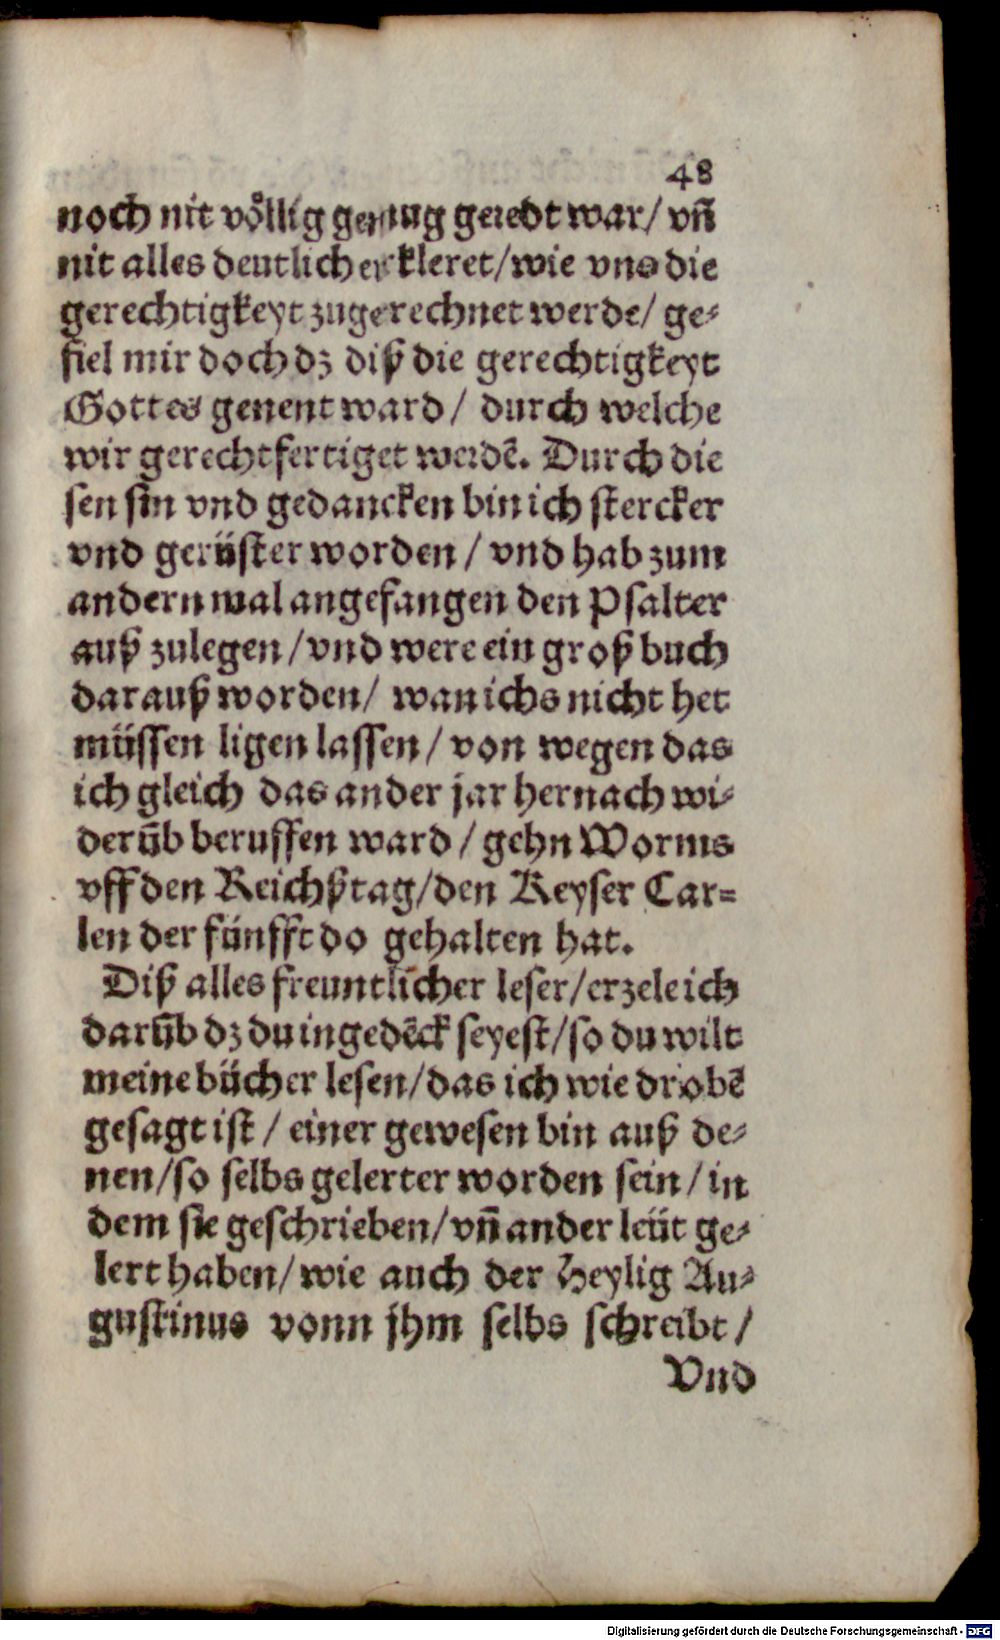 48
noch nit vo̊llig genug geredt war/ vn̄
nit alles deutlich erkleret/wie vns die
gerechtigkeyt zugerechnet werde/ ge⸗
fiel mir doch dz diß die gerechtigkeyt
Gottes genent ward/ durch welche
wir gerechtfertiget werdē. Durch die
sen sin vnd gedancken bin ich stercker
vnd gerüster worden/ vnd hab zum
andern mal angefangen den Psalter
auß zulegen/vnd were ein groß buch
darauß worden/ wan ichs nicht het
müssen ligen lassen/ von wegen das
ich gleich das ander jar hernach wi⸗
derūb beruffen ward/ gehn Worms
vff den Reichßtag/den Keyser Car⸗
len der fünfft do gehalten hat.
Diß alles freuntlicher leser/erzele ich
darūb dz du ingedēck seyest/so du wilt
meine bücher lesen/das ich wie drobē
gesagt ist/ einer gewesen bin auß de⸗
nen/so selbs gelerter worden sein/in
dem sie geschrieben/vn̄ ander leüt ge⸗
lert haben/ wie auch der Heylig Au⸗
gustinus vonn jhm selbs schreibt/
Vnd
Digitalisierung gefördert durch die Deutsche Forschungsgemeinschaft - DFG